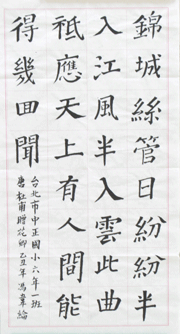 錦城絲管日紛紛半
入江風半入雲此曲
祇應天上有人間能
得幾回聞
台北市中正國小六年一班
唐杜甫贈花卿乙丑年馮